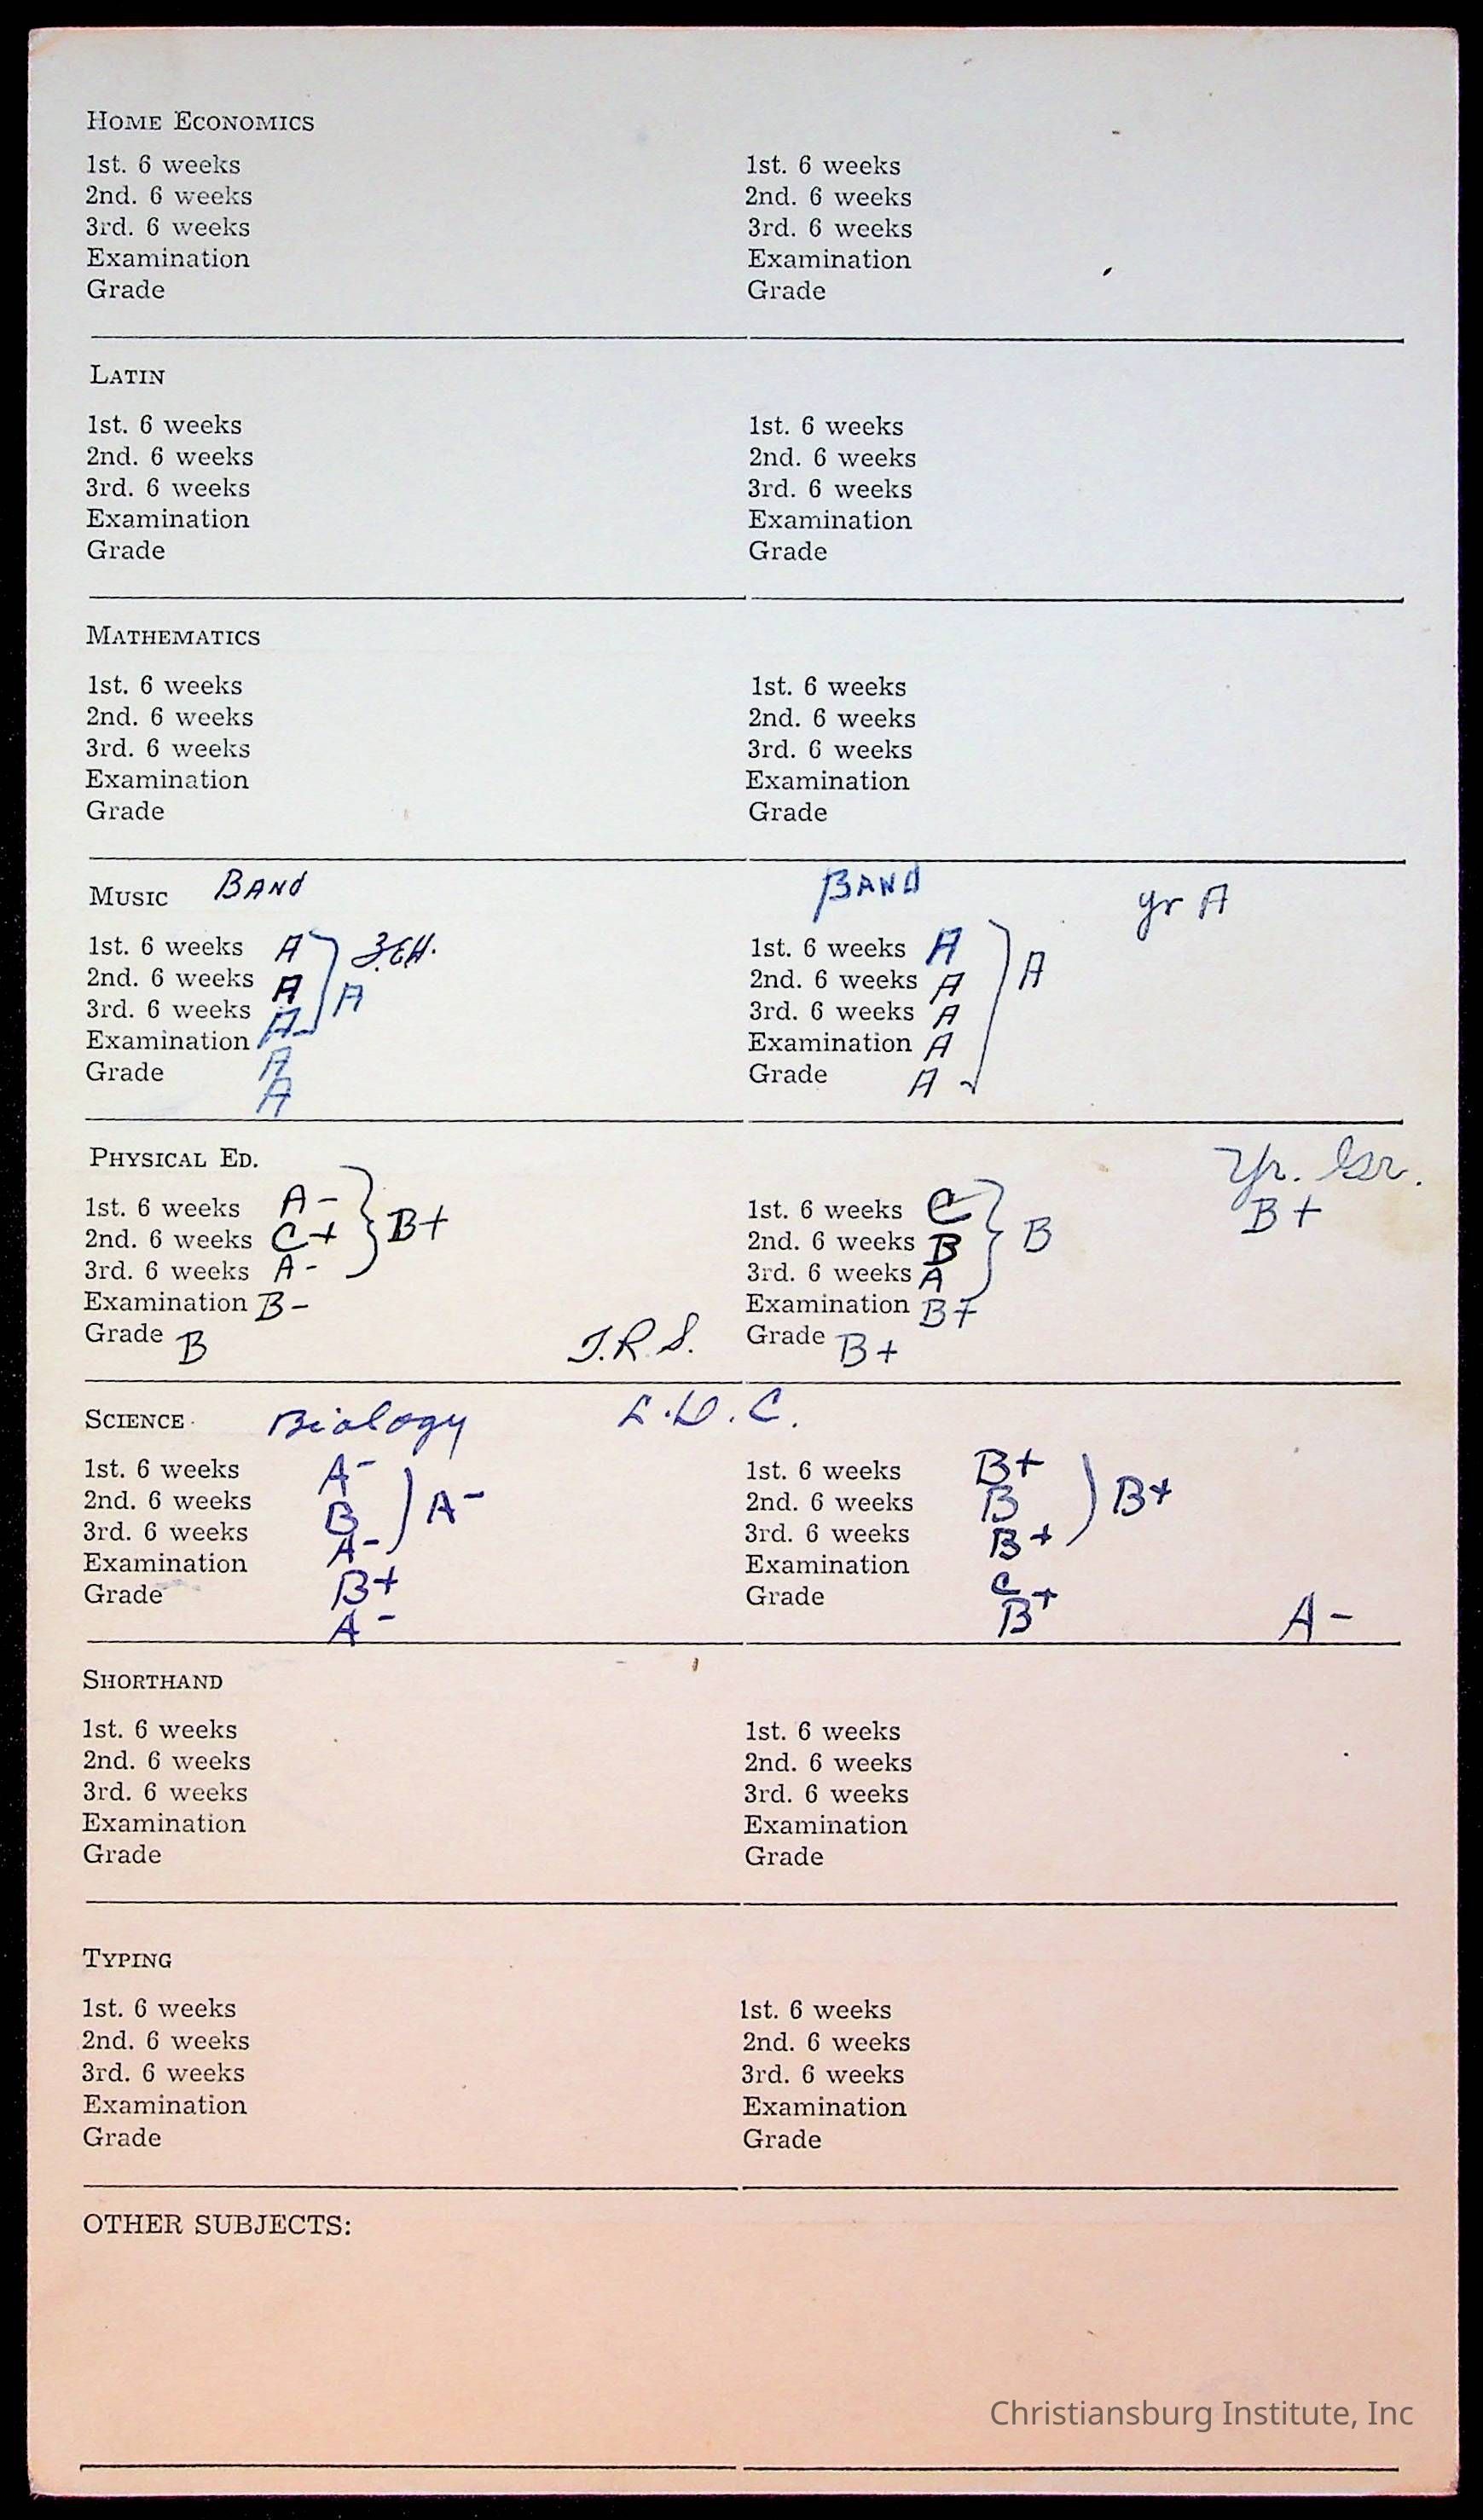 HOME ECONOMICS
1st. 6 weeks 1st. 6 weeks
2nd. 6 weeks 2nd. 6 weeks
3rd. 6 weeks 3rd. 6 weeks
Examination Examination
Grade Grade
LATIN
1st. 6 weeks 1st. 6 weeks
2nd. 6 weeks 2nd. 6 weeks
3rd. 6 weeks 3rd. 6 weeks
Examination Examination
Grade Grade
MATHEMATICS
1st. 6 weeks 1st. 6 weeks
2nd. 6 weeks 2nd. 6 weeks
3rd. 6 weeks 3rd. 6 weeks
Examination Examination
Grade Grade
MUSIC BAND BAND yr A
1st. 6 weeks A 1st. 6 weeks A
2nd. 6 weeks A A 2nd. 6 weeks A A
3rd. 6 weeks A 3rd. 6 weeks A
Examination A Examination A
Grade A Grade A
PHYSICAL ED. Yr. Gr.
1st. 6 weeks A- 1st. 6 weeks C B+
2nd. 6 weeks C+ B+ 2nd. 6 weeks B B
3rd. 6 weeks A- 3rd. 6 weeks A
Examination B- Examination B+
Grade B J.R.S. Grade B+
SCIENCE Biology L.D.C.
1st. 6 weeks A- 1st. 6 weeks B+
2nd. 6 weeks B A- 2nd. 6 weeks B B+
3rd. 6 weeks A- 3rd. 6 weeks B+
Examination B+ Examination C
Grade A- Grade B+ A-
SHORTHAND
1st. 6 weeks 1st. 6 weeks
2nd. 6 weeks 2nd. 6 weeks
3rd. 6 weeks 3rd. 6 weeks
Examination Examination
Grade Grade
TYPING
1st. 6 weeks 1st. 6 weeks
2nd. 6 weeks 2nd. 6 weeks
3rd. 6 weeks 3rd. 6 weeks
Examination Examination
Grade Grade
OTHER SUBJECTS:
Christiansburg Institute, Inc